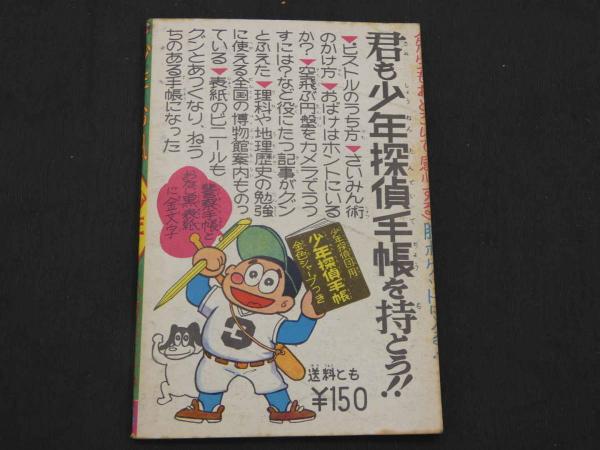 君も少年探偵手帳を持とう!!
▼ピストルのうち方▼さいみん術
のかけ方▼おばけはホントにいる
か?▼空飛ぶ円盤をカメラでうつ
すには?など役にたつ記事がグン
とふえた▼理科や地理歴史の勉強
に使える全国の博物館案内ものっ
ている▼表紙のビニールも
グンとあつくなり、ねう
ちのある手帳になった
警察手帳と
おなじ黒表紙
に金文字
少年探偵団用
少年探偵手帳
金色シャープつき
3
送料とも
¥150